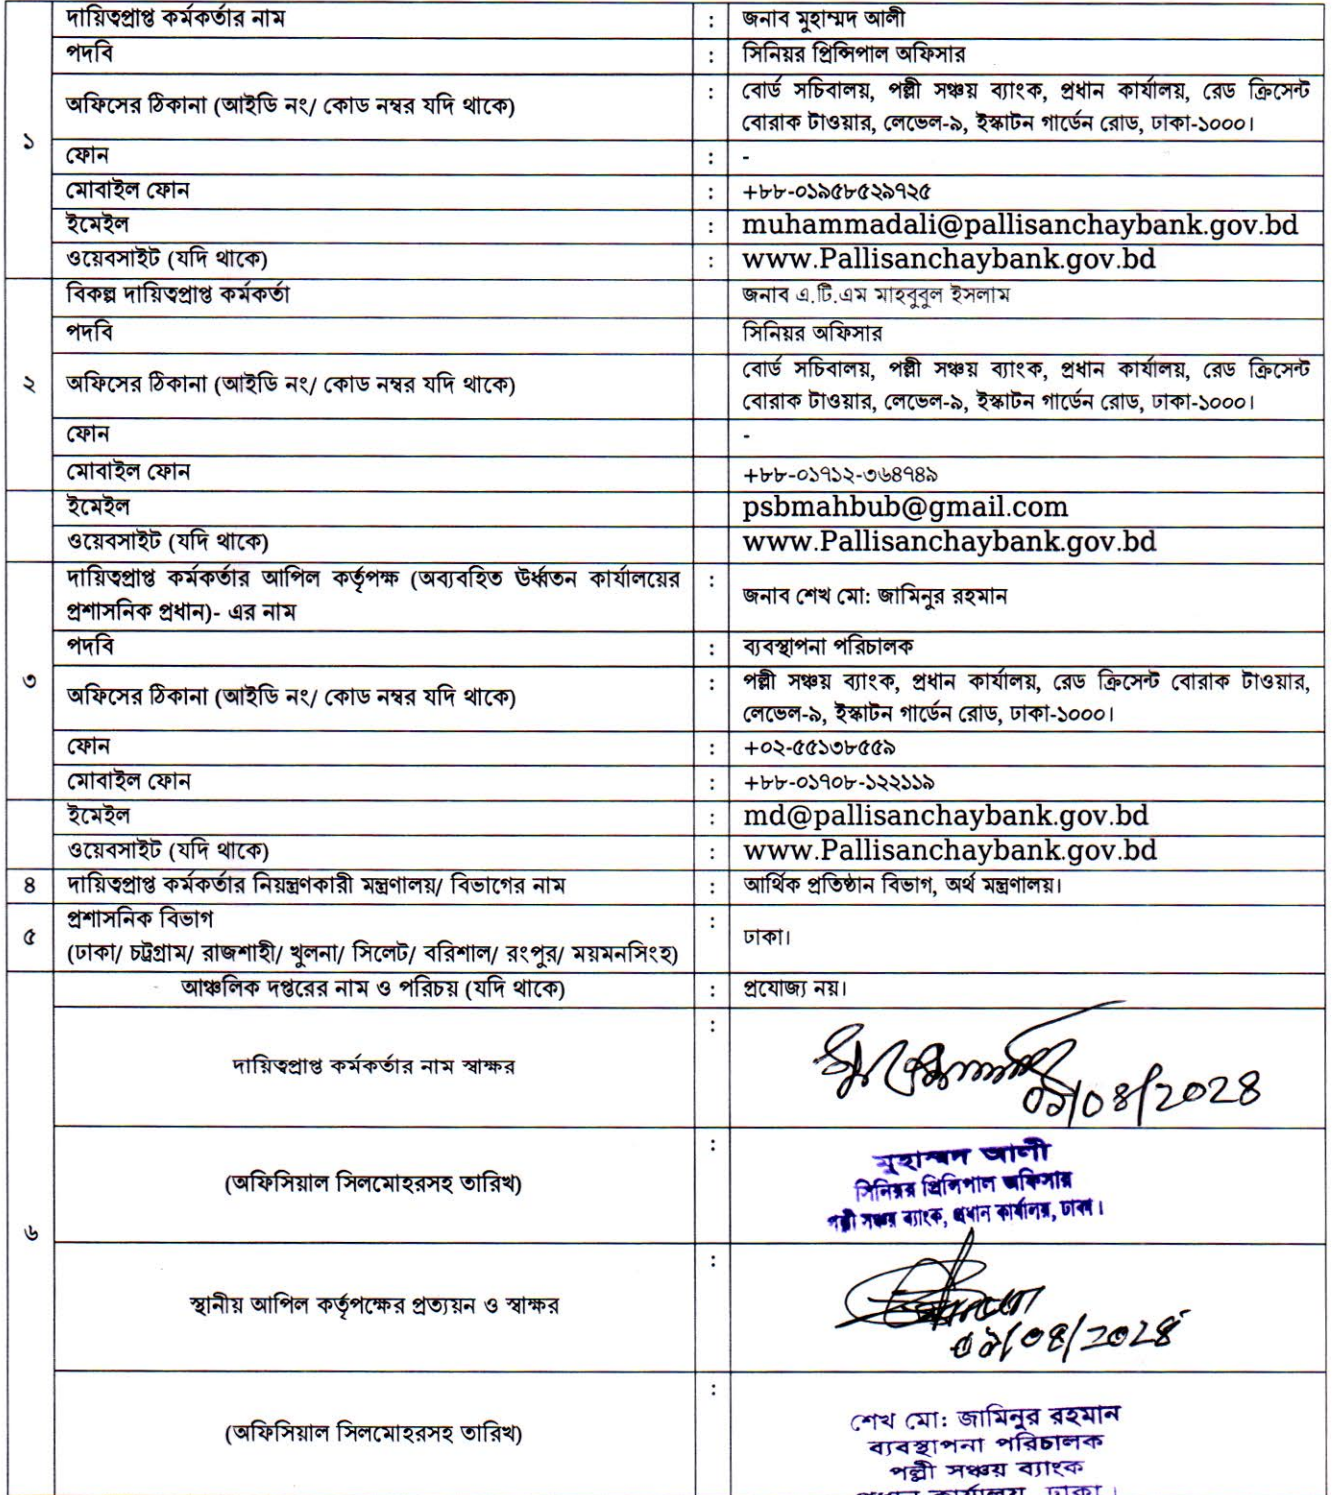 দায়িত্বপ্রাপ্ত কর্মকর্তার নাম : জনাব মুহাম্মদ আলী
পদবি : সিনিয়র প্রিন্সিপাল অফিসার
১ অফিসের ঠিকানা (আইডি নং/ কোড নম্বর যদি থাকে) : বোর্ড সচিবালয়, পল্লী সঞ্চয় ব্যাংক, প্রধান কার্যালয়, রেড ক্রিসেন্ট
বোরাক টাওয়ার, লেভেল-৯, ইস্কাটন গার্ডেন রোড, ঢাকা-১০০০।
ফোন : -
মোবাইল ফোন : +৮৮-০১৯৫৮৫২৯৭২৫
ইমেইল : muhammadali@pallisanchaybank.gov.bd
ওয়েবসাইট (যদি থাকে) : www.Pallisanchaybank.gov.bd
বিকল্প দায়িত্বপ্রাপ্ত কর্মকর্তা জনাব এ.টি.এম মাহবুবুল ইসলাম
পদবি সিনিয়র অফিসার
২ অফিসের ঠিকানা (আইডি নং/ কোড নম্বর যদি থাকে) বোর্ড সচিবালয়, পল্লী সঞ্চয় ব্যাংক, প্রধান কার্যালয়, রেড ক্রিসেন্ট
বোরাক টাওয়ার, লেভেল-৯, ইস্কাটন গার্ডেন রোড, ঢাকা-১০০০।
ফোন -
মোবাইল ফোন +৮৮-০১৭১২-৩৬৪৭৪৯
ইমেইল psbmahbub@gmail.com
ওয়েবসাইট (যদি থাকে) www.Pallisanchaybank.gov.bd
দায়িত্বপ্রাপ্ত কর্মকর্তার আপিল কর্তৃপক্ষ (অব্যবহিত উর্ধ্বতন কার্যালয়ের
প্রশাসনিক প্রধান)- এর নাম : জনাব শেখ মো: জামিনুর রহমান
পদবি : ব্যবস্থাপনা পরিচালক
৩ অফিসের ঠিকানা (আইডি নং/ কোড নম্বর যদি থাকে) : পল্লী সঞ্চয় ব্যাংক, প্রধান কার্যালয়, রেড ক্রিসেন্ট বোরাক টাওয়ার,
লেভেল-৯, ইস্কাটন গার্ডেন রোড, ঢাকা-১০০০।
ফোন : +০২-৫৫১৩৮৫৫৯
মোবাইল ফোন : +৮৮-০১৭০৮-১২২১১৯
ইমেইল : md@pallisanchaybank.gov.bd
ওয়েবসাইট (যদি থাকে) : www.Pallisanchaybank.gov.bd
৪ দায়িত্বপ্রাপ্ত কর্মকর্তার নিয়ন্ত্রণকারী মন্ত্রণালয়/ বিভাগের নাম : আর্থিক প্রতিষ্ঠান বিভাগ, অর্থ মন্ত্রণালয়।
৫ প্রশাসনিক বিভাগ
(ঢাকা/ চট্রগ্রাম/ রাজশাহী/ খুলনা/ সিলেট/ বরিশাল/ রংপুর/ ময়মনসিংহ) : ঢাকা।
আঞ্চলিক দপ্তরের নাম ও পরিচয় (যদি থাকে) : প্রযোজ্য নয়।
দায়িত্বপ্রাপ্ত কর্মকর্তার নাম স্বাক্ষর :
(অফিসিয়াল সিলমোহরসহ তারিখ) : মুহাম্মদ আলী
সিনিয়র প্রিন্সিপাল অফিসার
পল্লী সঞ্চয় ব্যাংক, প্রধান কার্যালয়, ঢাকা।
৬
স্থানীয় আপিল কর্তৃপক্ষের প্রত্যয়ন ও স্বাক্ষর :
(অফিসিয়াল সিলমোহরসহ তারিখ) : শেখ মো: জামিনুর রহমান
ব্যবস্থাপনা পরিচালক
পল্লী সঞ্চয় ব্যাংক
প্রধান কার্যালয়, ঢাকা।